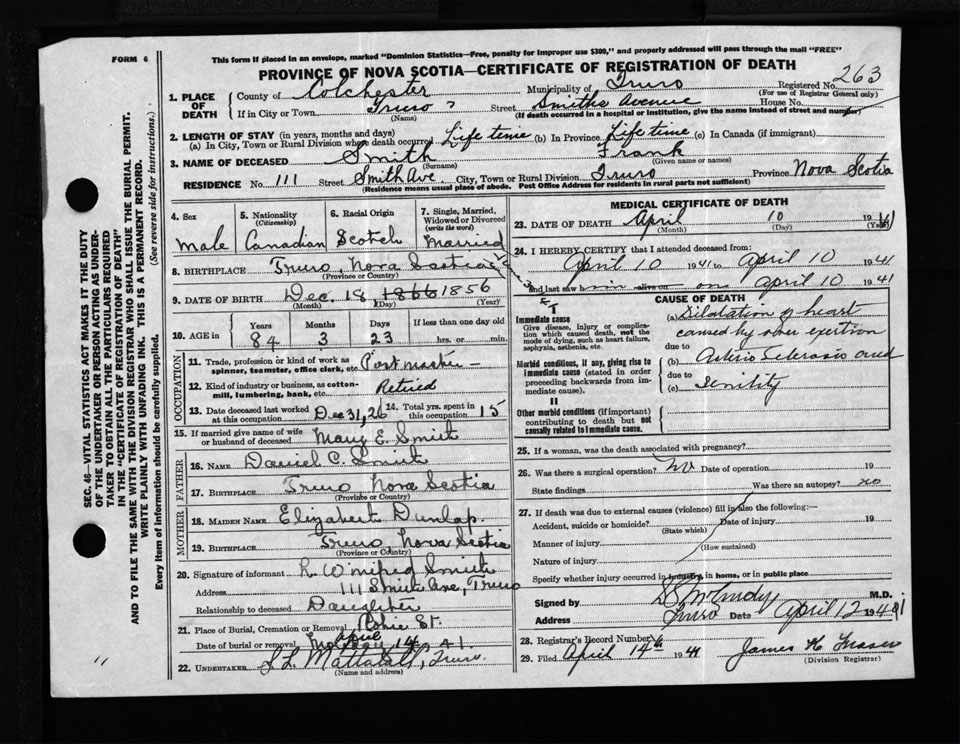 FORM 6
This form if placed in an envelope, marked "Dominion Statistics—Free, penalty for improper use $300," and properly addressed will pass through the mail "FREE"
PROVINCE OF NOVA SCOTIA—CERTIFICATE OF REGISTRATION OF DEATH
1. PLACE OF DEATH
County of Colchester Municipality of Truro Registered No. 263
(For use of Registrar General only)
If in City or Town Truro Street Smiths Avenue House No.
(Name) (If death occurred in a hospital or institution, give the name instead of street and number)
2. LENGTH OF STAY (in years, months and days)
(a) In City, Town or Rural Division where death occurred Life time (b) In Province Life time (c) In Canada (if immigrant)
3. NAME OF DECEASED Smith Frank
(Surname) (Given name or names)
RESIDENCE No. 111 Street Smith Ave. City, Town or Rural Division Truro Province Nova Scotia
(Residence means usual place of abode. Post Office Address for residents in rural parts not sufficient)
4. Sex
Male
5. Nationality
(Citizenship)
Canadian
6. Racial Origin
Scotch
7. Single, Married, Widowed or Divorced
(write the word)
Married
8. BIRTHPLACE Truro, Nova Scotia
(Province or Country)
9. DATE OF BIRTH Dec. 18 1866 1856
(Month) (Day) (Year)
10. AGE in
Years Months Days If less than one day old
84 3 23 hrs. or min.
OCCUPATION
11. Trade, profession or kind of work as spinner, teamster, office clerk, etc. Postmaster
12. Kind of industry or business, as cotton-mill, lumbering, bank, etc. Retired
13. Date deceased last worked at this occupation Dec 31, 26 14. Total yrs. spent in this occupation 15
15. If married give name of wife or husband of deceased Mary E. Smith
FATHER
16. NAME Daniel C. Smith
17. BIRTHPLACE Truro, Nova Scotia
(Province or Country)
MOTHER
18. MAIDEN NAME Elizabeth Dunlap.
19. BIRTHPLACE Truro Nova Scotia
(Province or Country)
20. Signature of informant L. Winifred Smith
Address 111 Smith Ave, Truro
Relationship to deceased Daughter
21. Place of Burial, Cremation or Removal Robie St.
Date of burial or removal April 14 41
22. UNDERTAKER Truro.
(Name and address)
MEDICAL CERTIFICATE OF DEATH
23. DATE OF DEATH April 10 1941
(Month) (Day) (Year)
24. I HEREBY CERTIFY that I attended deceased from:
April 10 1941 to April 10 1941
and last saw h alive on April 10 1941
CAUSE OF DEATH
I
Immediate cause
Give disease, injury or complication which caused death, not the mode of dying, such as heart failure, asphyxia, asthenia, etc.
Morbid conditions, if any, giving rise to immediate cause (stated in order proceeding backwards from immediate cause).
II
Other morbid conditions (if important) contributing to death but not causally related to immediate cause.
(a) Dilatation of heart
caused by over exertion
due to
(b) Arterio Sclerosis and
due to
(c) Senility
25. If a woman, was the death associated with pregnancy?
26. Was there a surgical operation? No Date of operation 19
State findings Was there an autopsy? no
27. If death was due to external causes (violence) fill in also the following:—
Accident, suicide or homicide? Date of injury 19
(State which)
Manner of injury
(How sustained)
Nature of injury
Specify whether injury occurred in industry, in home, or in public place
Signed by M.D.
Address Truro Date April 12 1941
28. Registrar's Record Number
29. Filed April 14th 1941 James H Fraser
(Division Registrar)
SEC. 46—VITAL STATISTICS ACT MAKES IT THE DUTY
OF THE UNDERTAKER OR PERSON ACTING AS UNDER-
TAKER TO OBTAIN ALL THE PARTICULARS REQUIRED
IN THE "CERTIFICATE OF REGISTRATION OF DEATH"
AND TO FILE THE SAME WITH THE DIVISION REGISTRAR WHO SHALL ISSUE THE BURIAL PERMIT.
WRITE PLAINLY WITH UNFADING INK. THIS IS A PERMANENT RECORD.
Every item of information should be carefully supplied. (See reverse side for instructions.)